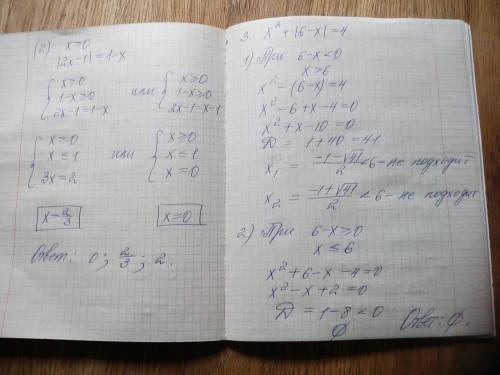 (2) x=0
|2x-1|=1-x
{ x≥0 1-x≥0 2x-1=1-x или { x≥0 1-x≥0 2x-1=x-1
{ x≥0 x≤1 3x=2 или { x≥0 x≤1 x=0
x=2/3 x=0
Ответ: 0; 2/3; 2.
3. x²+|6-x|=4
1) При 6-x<0
x>6
x²-(6-x)=4
x²-6+x-4=0
x²+x-10=0
D = 1+40=41
x₁ = (-1-√41)/2 <6- не подходит
x₂ = (-1+√41)/2 <6- не подходит
2) При 6-x≥0
x≤6
x²+6-x-4=0
x²-x+2=0
D = 1-8<0
Ø Ответ: Ø.